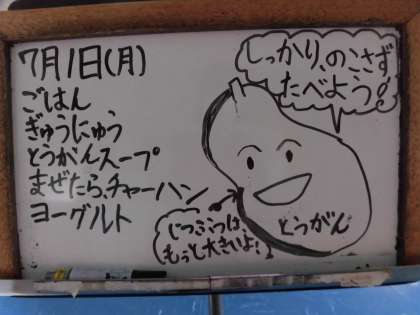 7月1日(月)
ごはん
ぎゅうにゅう
とうがんスープ
まぜたら、チャーハン
ヨーグルト
しっかり、のこさず
たべよう!
とうがん
じつぶつは、
もっと大きいよ!